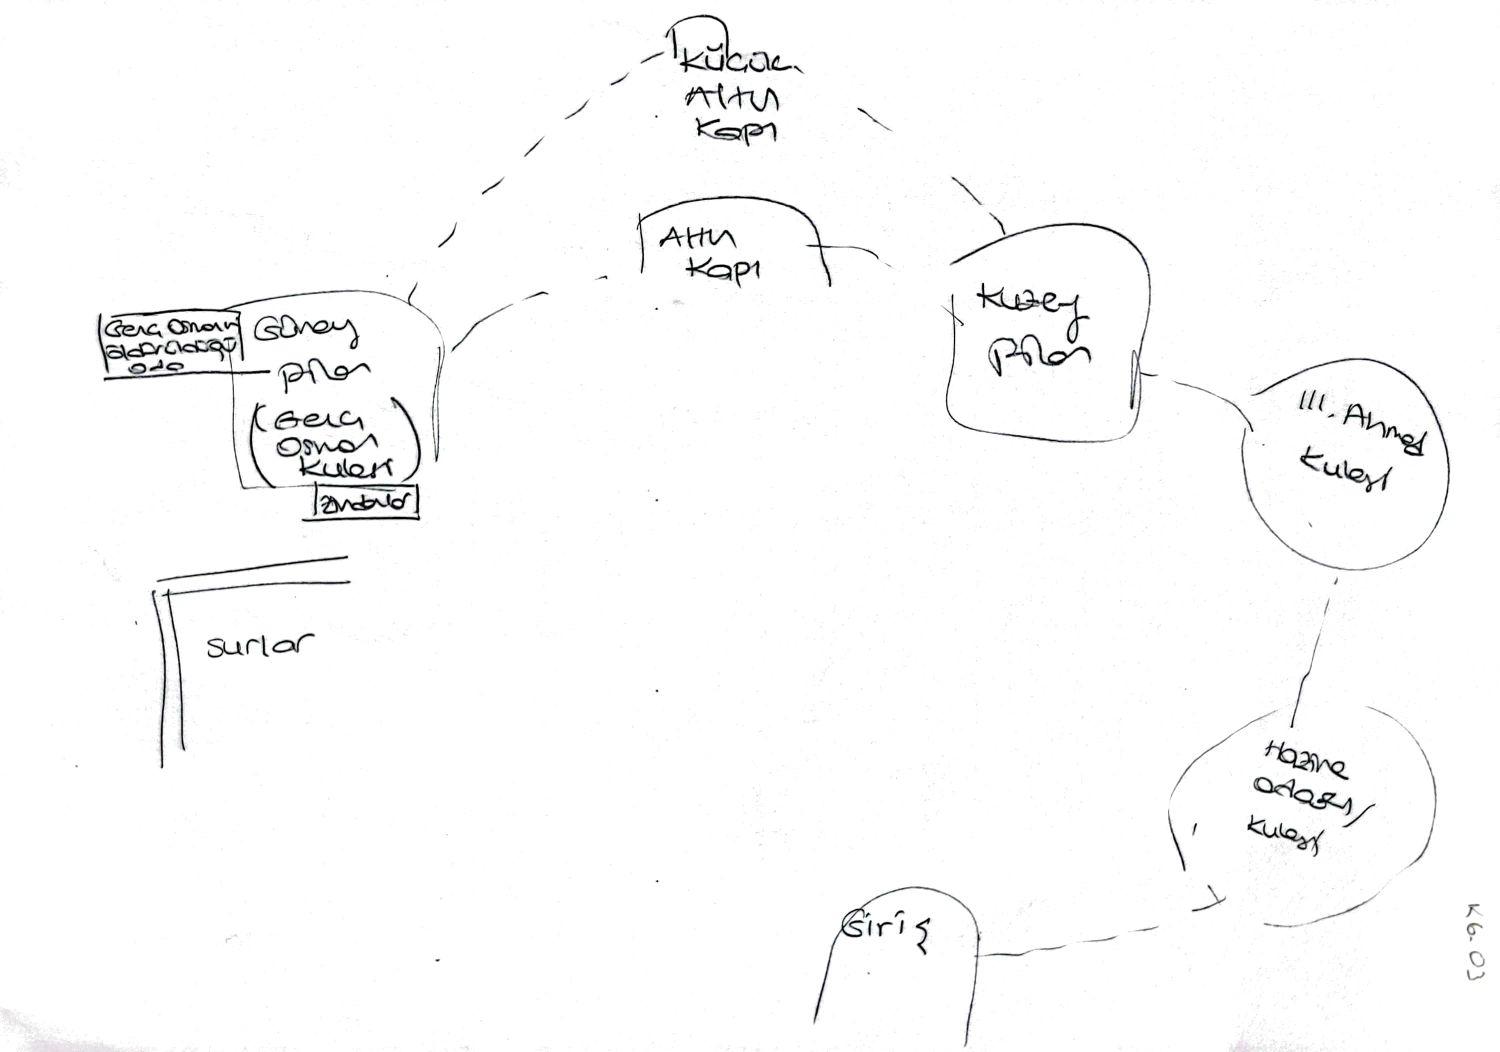 Küçük
Altın
Kapı
Altın
Kapı
Kuzey
Pilon
Genç Osman
öldürüldüğü
oda
Güney
pilon
(Genç
Osman
Kulesi)
Zindanlar
III. Ahmed
Kulesi
surlar
Hazine
Odası/
Kulesi
Giriş
K6.03